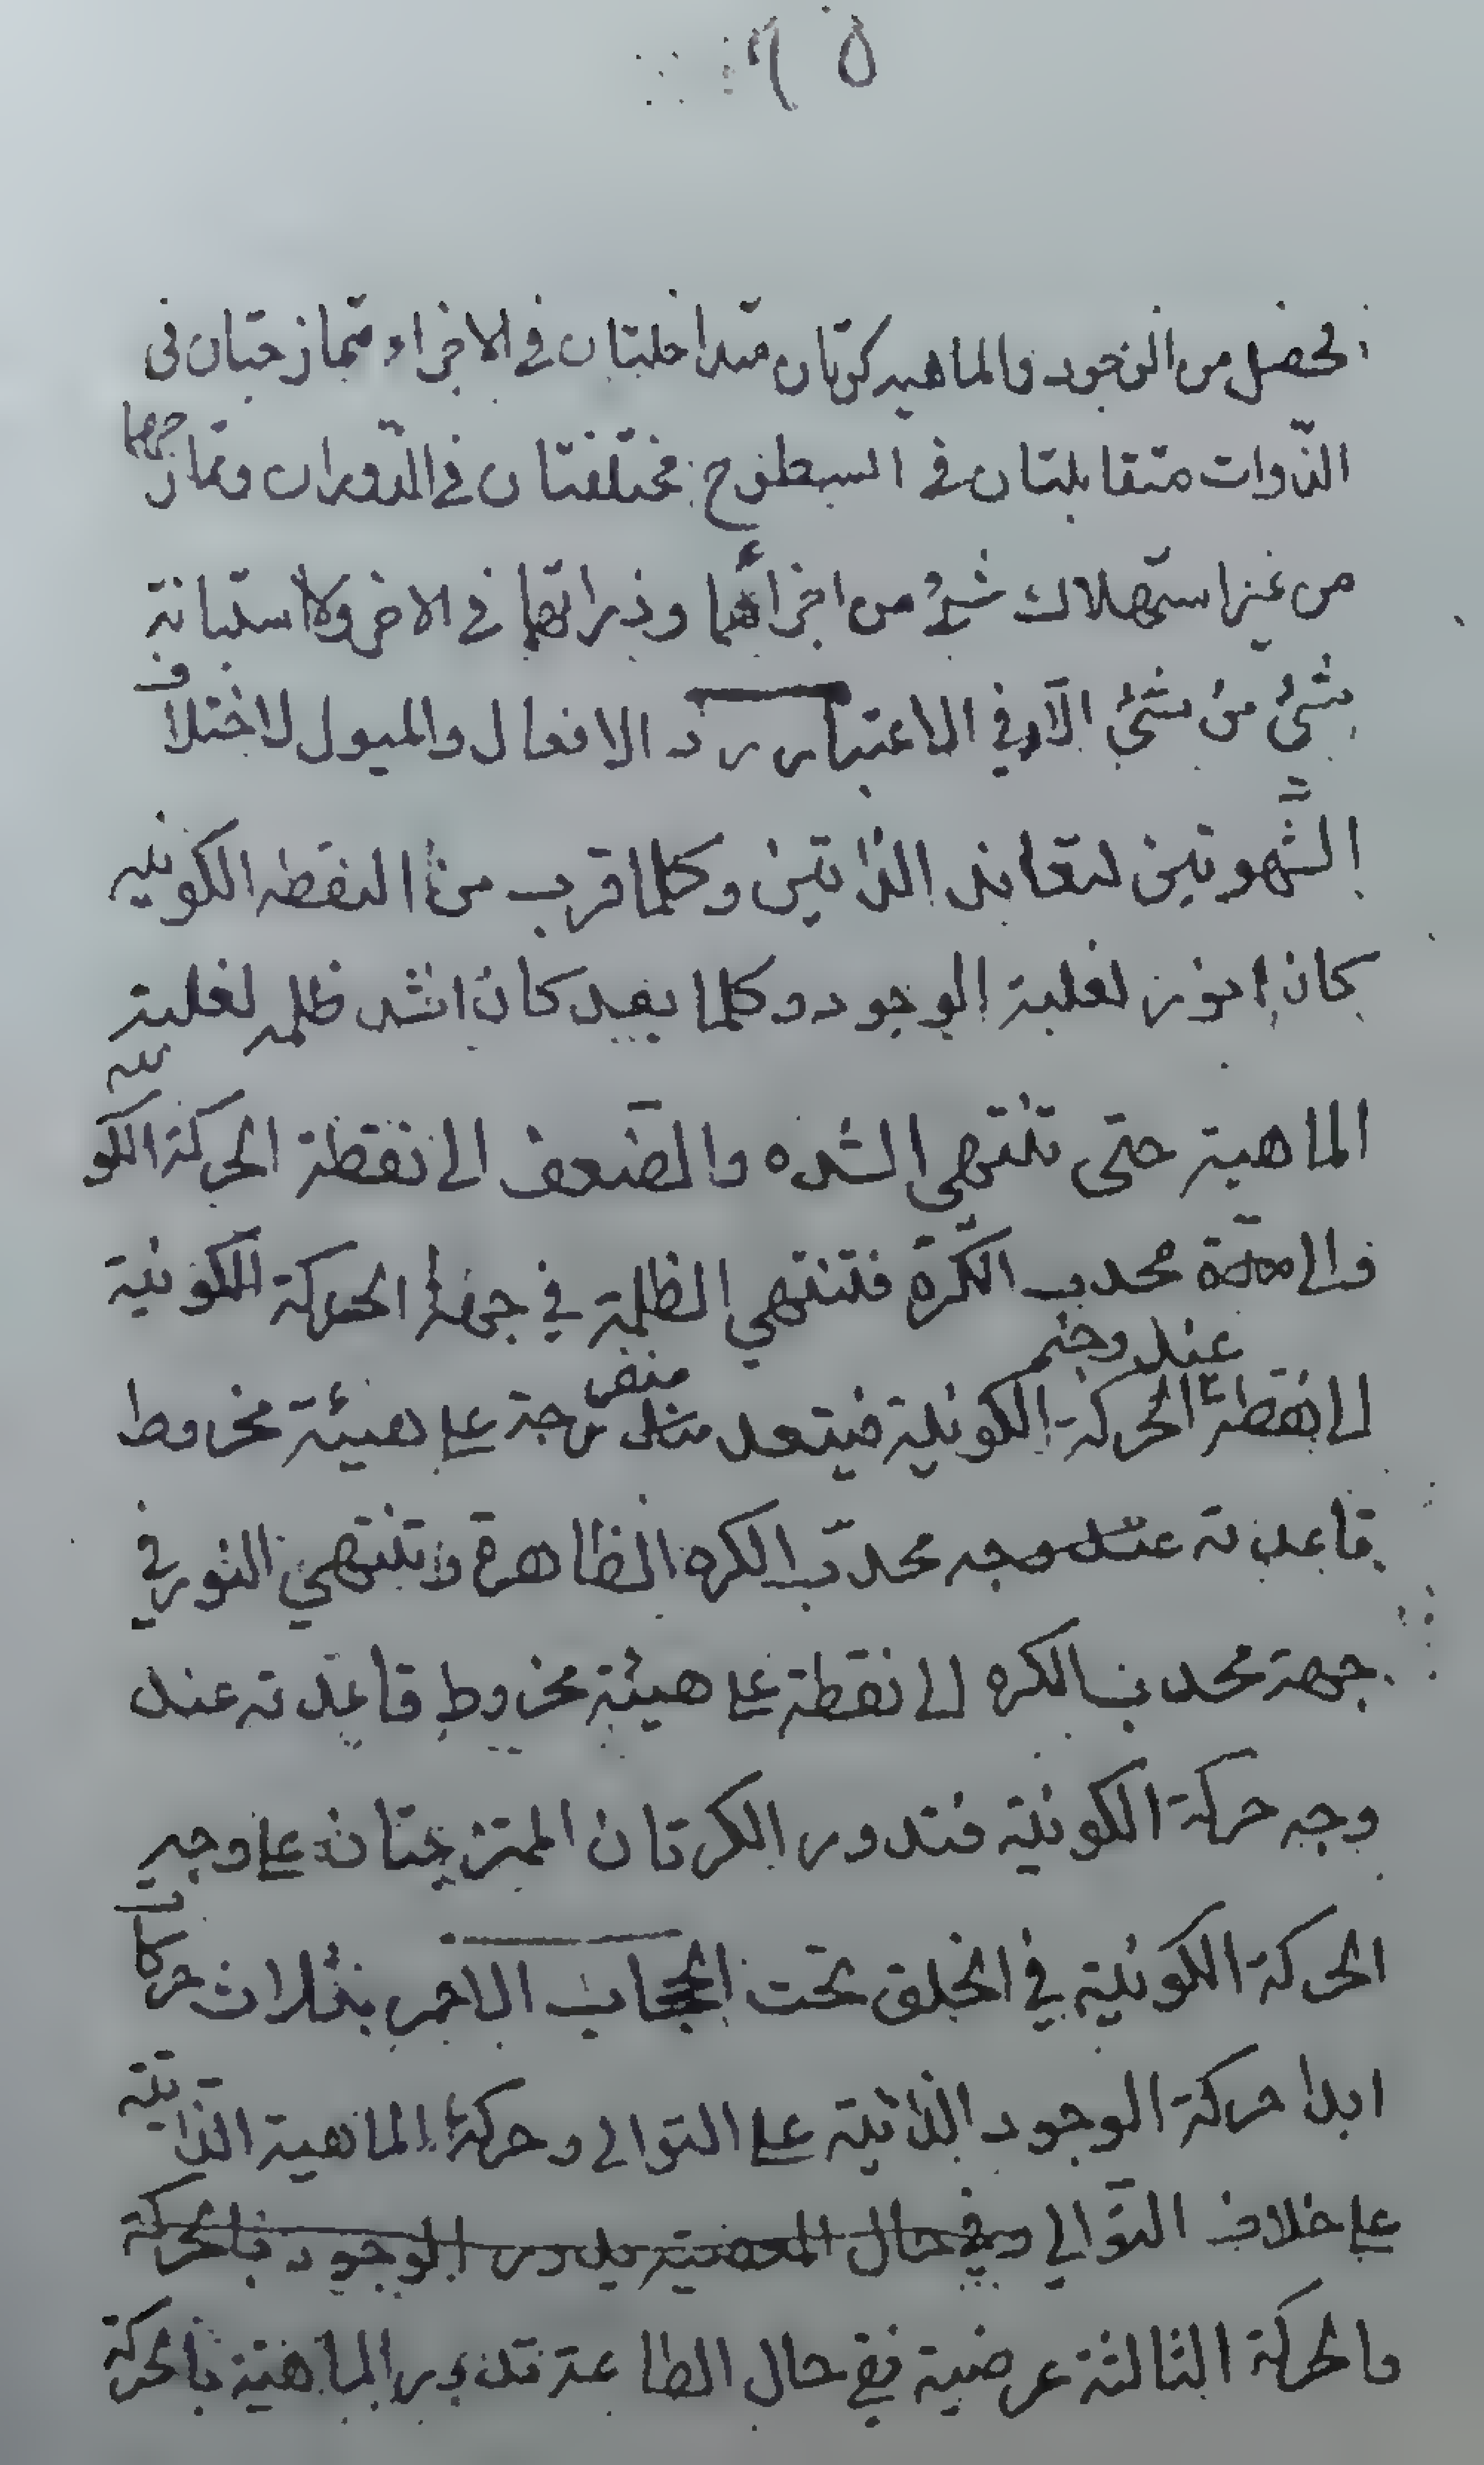 ٩٥
يحصل من الوجود والماهيه كرتان متداخلتان في الاجزاء متمازجتان في
الذوات متقابلتان في السطوح مختلفتان في الدوران وتمازجهما
من غير استهلاك شئ من اجزائهما وذراتهما في الاخر ولا استبانة
شئ من شئ الا في الاعتبار الافعال والميول لاختلاف
الشهوتين لتعاند الذاتين وكلما قرب من النقطه الكونيه
كان انور لغلبة الوجود وكلما بعد كان اشد ظلمه لغلبة
الماهية حتى تنتهي الشده والضعف الى نقطة الحركة الكونيه
والى محدب الكرة فتنتهي الظلمة في جهة الحركة الكونية
الى نقطة عند وجه الحركة الكونية منفرجة على هيئة مخروط
قاعدته عند وجه محدّب الكره الظاهرة وتنتهي النور في
جهة محدب الكره الى نقطة على هيئة مخروط قاعدته عند
وجه حركة الكونية فتدور الكرتان الممتزجتان على وجه
الحركة الكونية في الخلق تحت الحجاب الاحمر بثلاث حركات
ابدا حركة الوجود الذاتية على التوالي وحركة الماهية الذاتية
على خلاف التوالي وفي حال المعصية يدور الوجود بالحركة
والحركة الثالثة عرضية ففي حال الطاعة تدور الماهية بالحركة